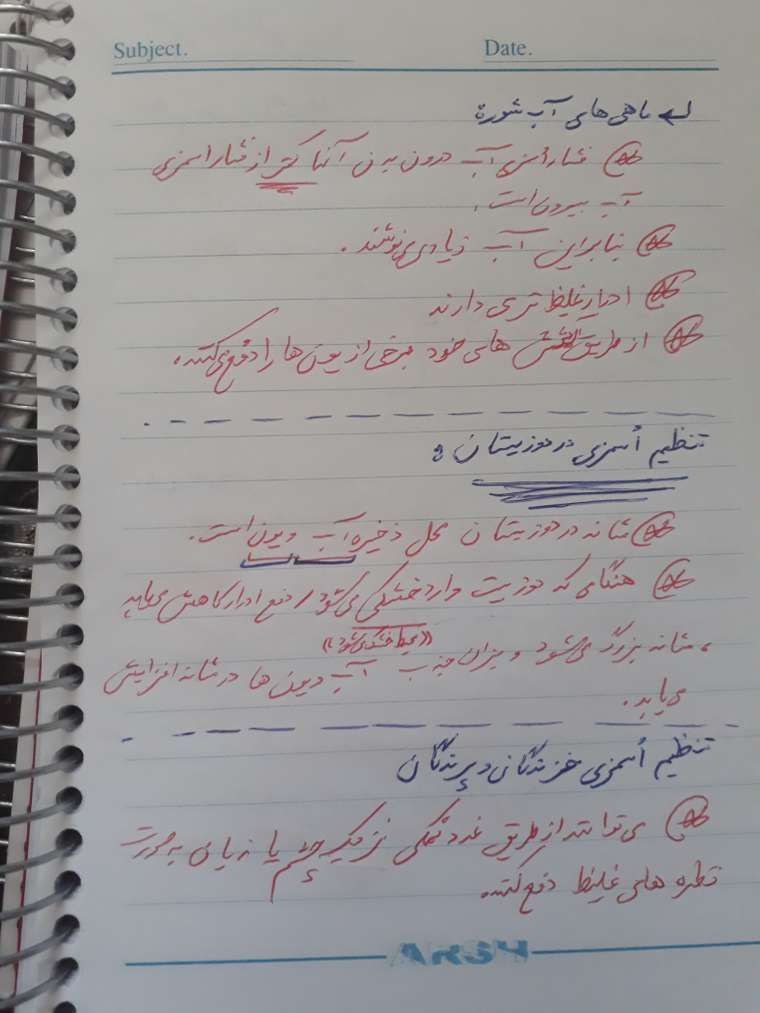 Subject. Date.
ماهی های آب شور:
فشار اسمزی آب درون بدن آنها کمتر از فشار اسمزی
آب بیرون است.
بنابراین آب زیادی می نوشند.
ادرار غلیظ تری دارند
از طریق آبشش های خود برخی از یون ها را دفع می کنند.
تنظیم اُسمزی در دوزیستان:
مثانه در دوزیستان محل ذخیره آب و یون است.
هنگامی که دوزیست وارد خشکی می شود، دفع ادرار کاهش می یابد
((محیط خشک می شود))
، مثانه بزرگ می شود و میزان جذب آب و یون ها در مثانه افزایش
می یابد.
تنظیم اُسمزی خزندگان و پرندگان
می توانند از طریق غدد نمکی نزدیک چشم یا زبان به صورت
قطره های غلیظ دفع کنند.
ARSH